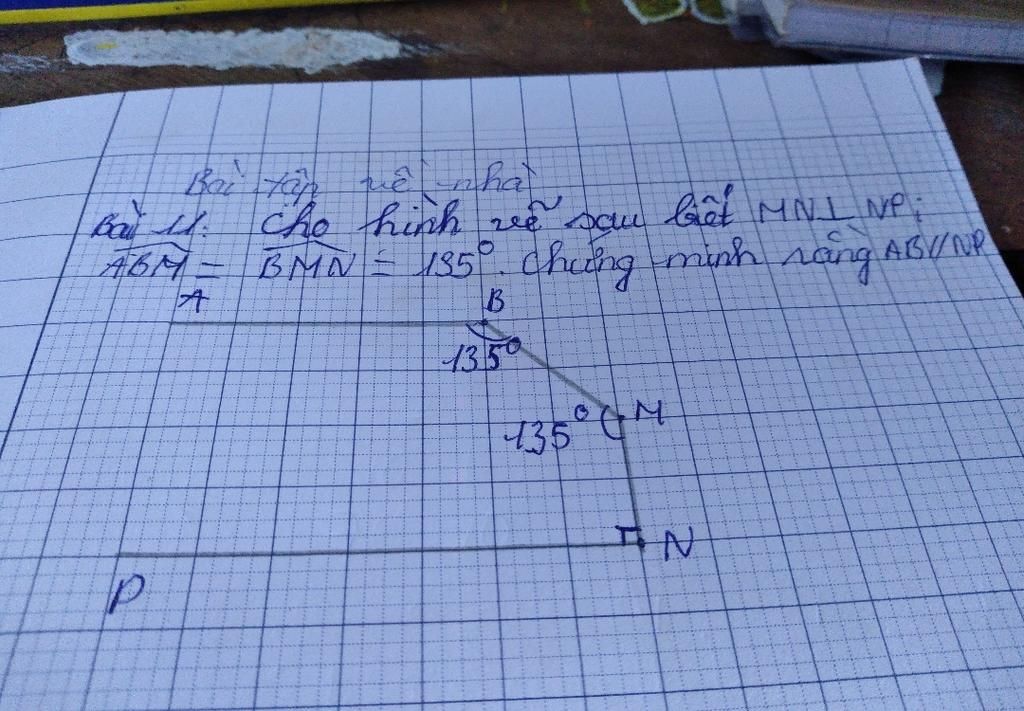 Bài tập về nhà
Bài 11: Cho hình vẽ sau biết MN⊥NP;
ABM = BMN = 135°. Chứng minh rằng AB//NP
A B
135°
135° M
N
P